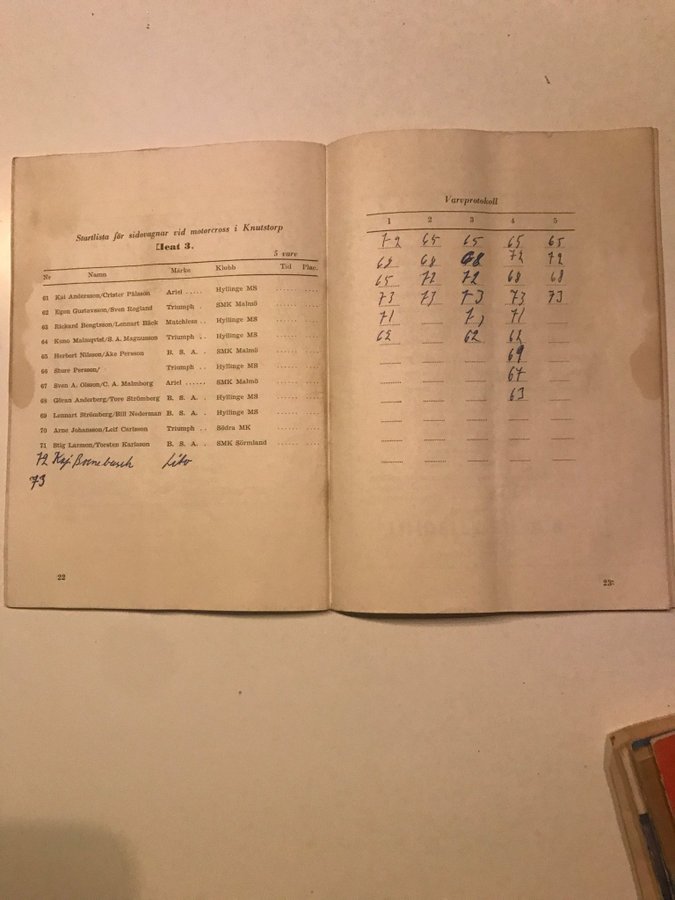 Startlista för sidovagnar vid motorcross i Knutstorp
Heat 3.
5 varv
Nr Namn Märke Klubb Tid Plac.
61 Kai Andersson/Crister Pålsson Ariel ..... Hyllinge MS ...... ....
62 Egon Gustavsson/Sven Rogland Triumph .. SMK Malmö ...... ....
63 Rickard Bengtsson/Lennart Bäck Matchless .. Hyllinge MS ...... ....
64 Keno Malmqvist/S. A. Magnusson Triumph .. Hyllinge MS ...... ....
65 Herbert Nilsson/Åke Persson B. S. A. . SMK Malmö ...... ....
66 Sture Persson/ Triumph .. Hyllinge MS ...... ....
67 Sven A. Olsson/C. A. Malmborg Ariel ...... SMK Malmö ...... ....
68 Göran Anderberg/Tore Strömberg B. S. A. . Hyllinge MS ...... ....
69 Lennart Strömberg/Bill Nederman B. S. A. . Hyllinge MS ...... ....
70 Arne Johansson/Leif Carlsson Triumph .. Södra MK ...... ....
71 Stig Larsson/Torsten Karlsson B. S. A. . SMK Sörmland ...... ....
72 Kaj Bornebusch
73
22
Varvprotokoll
1 2 3 4 5
72 65 65 65 65
68 68 68 72 72
65 72 72 68 68
73 73 73 73 73
71 71
62 62 62
69
67
63
23